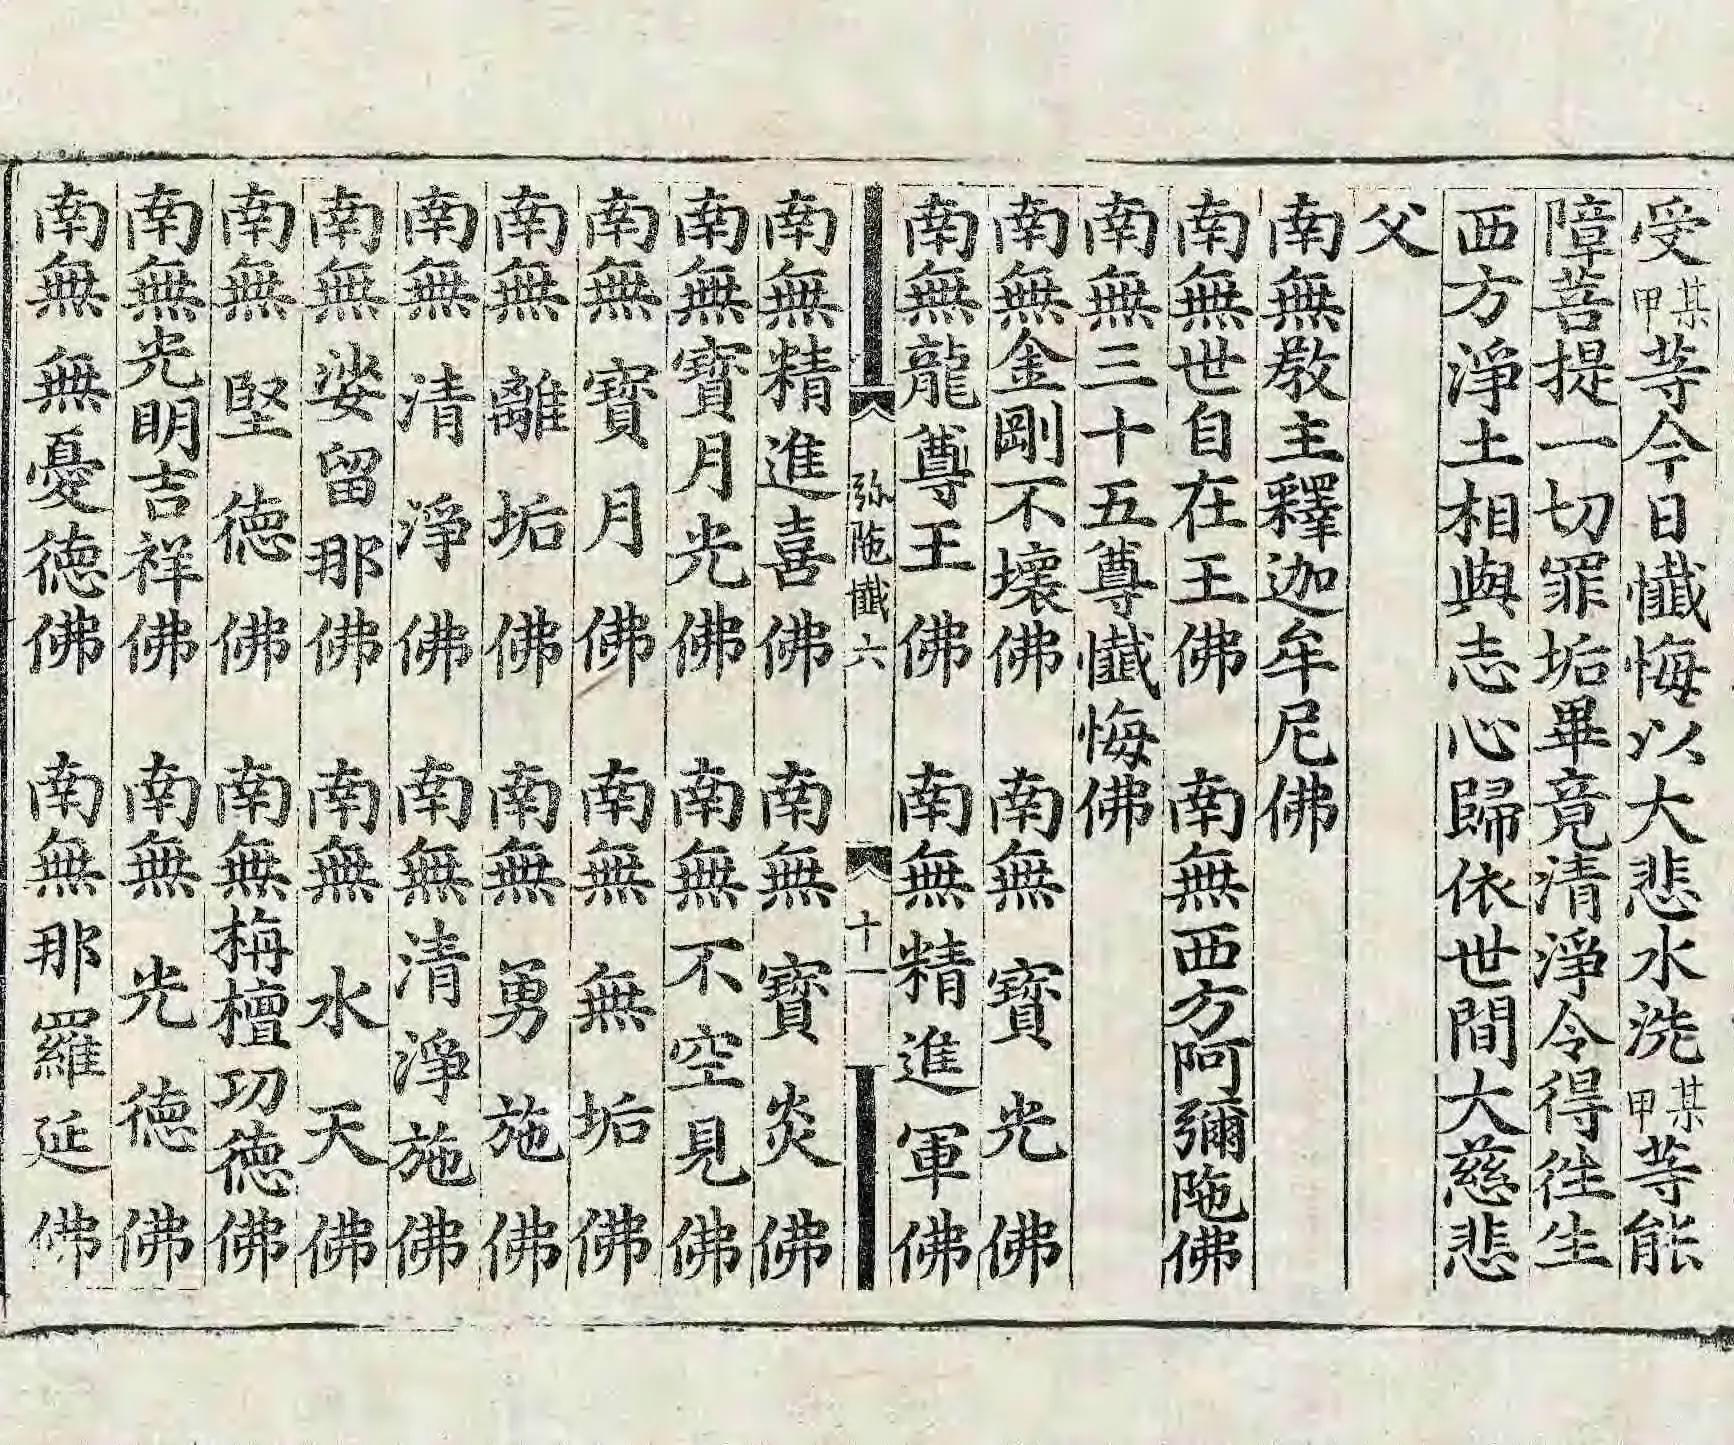 受某甲等今日懺悔以大悲水洗某甲等能
障菩提一切罪垢畢竟清淨令得徃生
西方淨土相與志心歸依世間大慈悲
父
南無教主釋迦牟尼佛
南無世自在王佛　南無西方阿彌陁佛
南無三十五尊懺悔佛
南無金剛不壞佛　南無寶光佛
南無龍尊王佛　南無精進軍佛
弥陁懺六　十一
南無精進喜佛　南無寶炎佛
南無寶月光佛　南無不空見佛
南無寶月佛　南無無垢佛
南無離垢佛　南無勇施佛
南無清淨佛　南無清淨施佛
南無娑留那佛　南無水天佛
南無堅德佛　南無栴檀功德佛
南無光明吉祥佛　南無光德佛
南無無憂德佛　南無那羅延佛